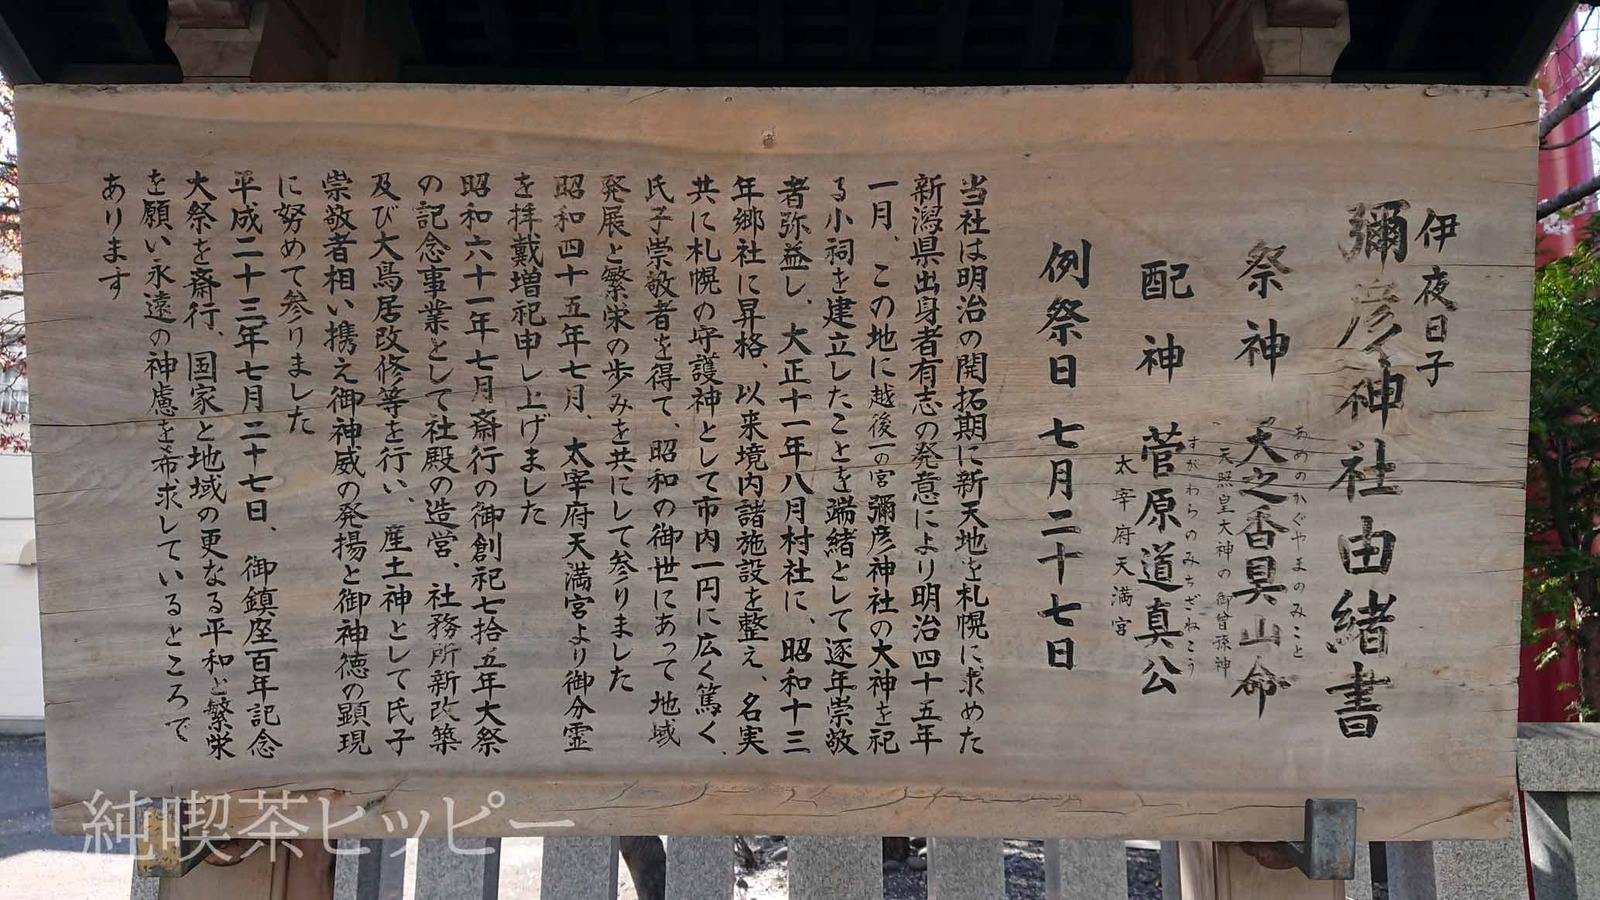 伊夜日子
彌彦神社由緒書
祭神 天之香具山命
あめのかぐやまのみこと
天照皇大神の御曽孫神
配神 菅原道真公
すがわらのみちざねこう
太宰府天満宮
例祭日 七月二十七日
当社は明治の開拓期に新天地を札幌に求めた
新潟県出身者有志の発意により明治四十五年
一月、この地に越後一の宮彌彦神社の大神を祀
る小祠を建立したことを端緒として逐年崇敬
者弥益し、大正十一年八月村社に、昭和十三
年郷社に昇格、以来境内諸施設を整え、名実
共に札幌の守護神として市内一円に広く篤く
氏子崇敬者を得て、昭和の御世にあって地域
発展と繁栄の歩みを共にして参りました
昭和四十五年七月、太宰府天満宮より御分霊
を拝戴増祀申し上げました
昭和六十一年七月斎行の御創祀七拾五年大祭
の記念事業として社殿の造営、社務所新改築
及び大鳥居改修等を行い、産土神として氏子
崇敬者相い携え御神威の発揚と御神徳の顕現
に努めて参りました
平成二十三年七月二十七日、御鎮座百年記念
大祭を斎行、国家と地域の更なる平和と繁栄
を願い永遠の神慮を希求しているところで
あります
純喫茶ヒッピー